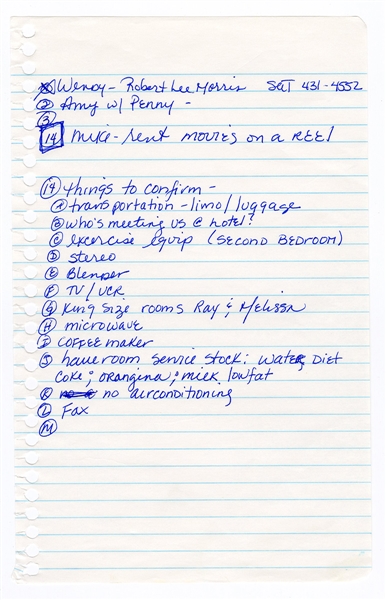 ① Wendy - Robert Lee Morris SAT 431-4552
② Amy w/ Penny -
③
14 Mike - sent movies on a REEL
⑭ things to confirm -
Ⓐ transportation - limo/luggage
Ⓑ who's meeting us @ hotel?
Ⓒ excercise equip (SECOND BEDROOM)
Ⓓ stereo
Ⓔ Blender
Ⓕ TV/VCR
Ⓖ King size rooms Ray & Melissa
Ⓗ microwave
Ⓘ COFFEE maker
Ⓙ have room service stock: water, DIET
coke; orangina; milk lowfat
Ⓚ no airconditioning
Ⓛ Fax
Ⓜ